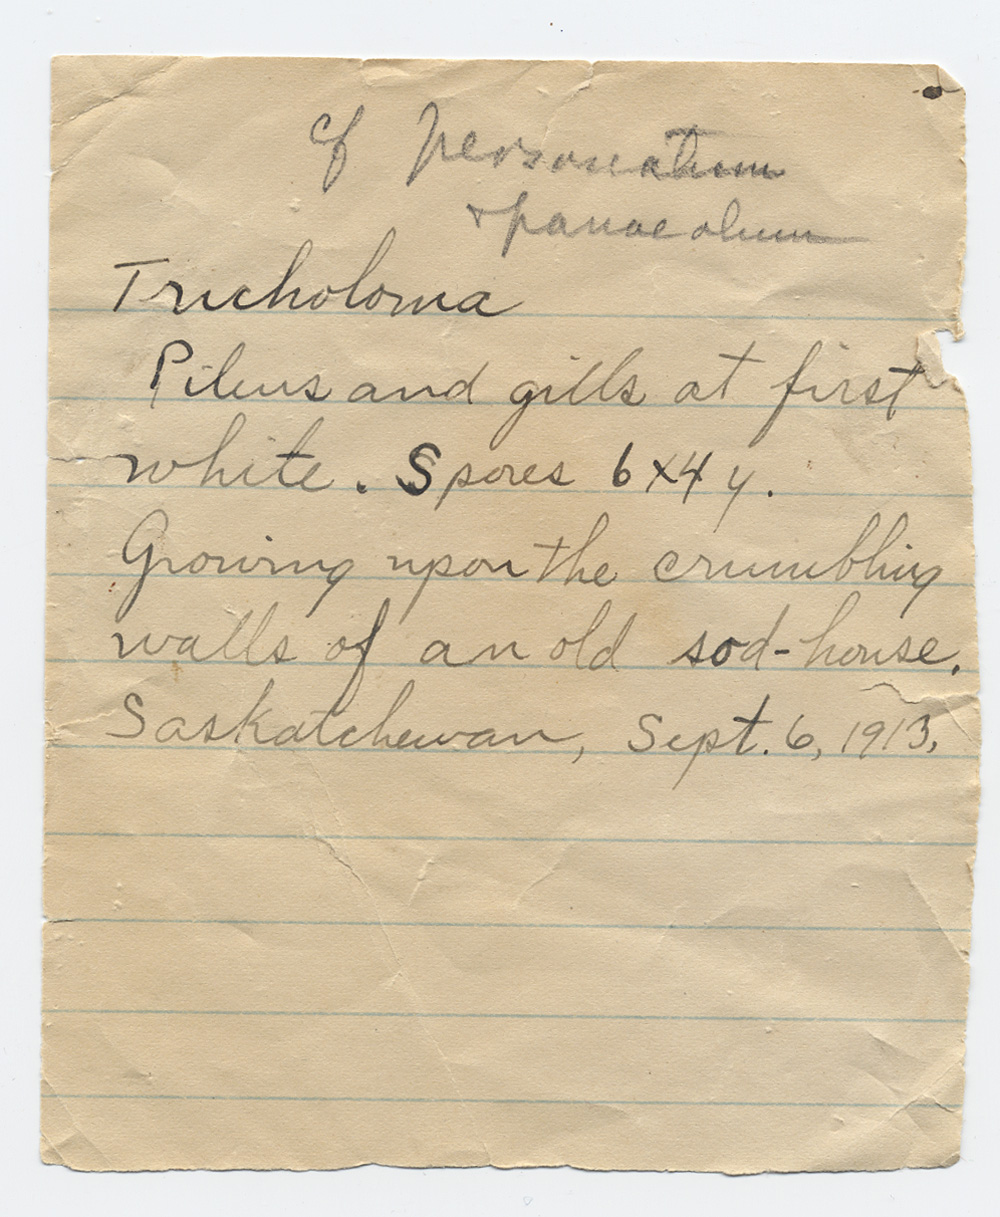 cf personatum
& panaeolum
Tricholoma
Pileus and gills at first
white. Spores 6x4 µ.
Growing upon the crumbling
walls of an old sod-house.
Saskatchewan, Sept. 6, 1913.